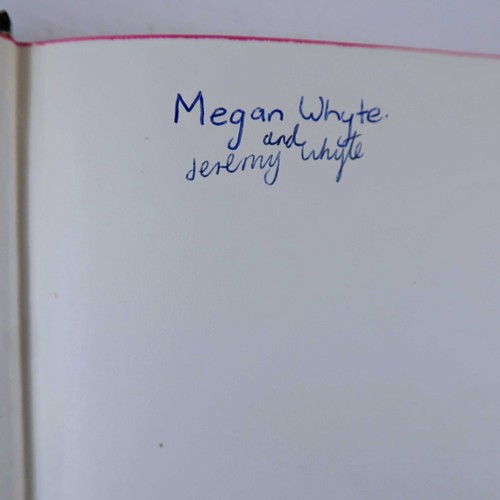 Megan Whyte.
and
Jeremy Whyte